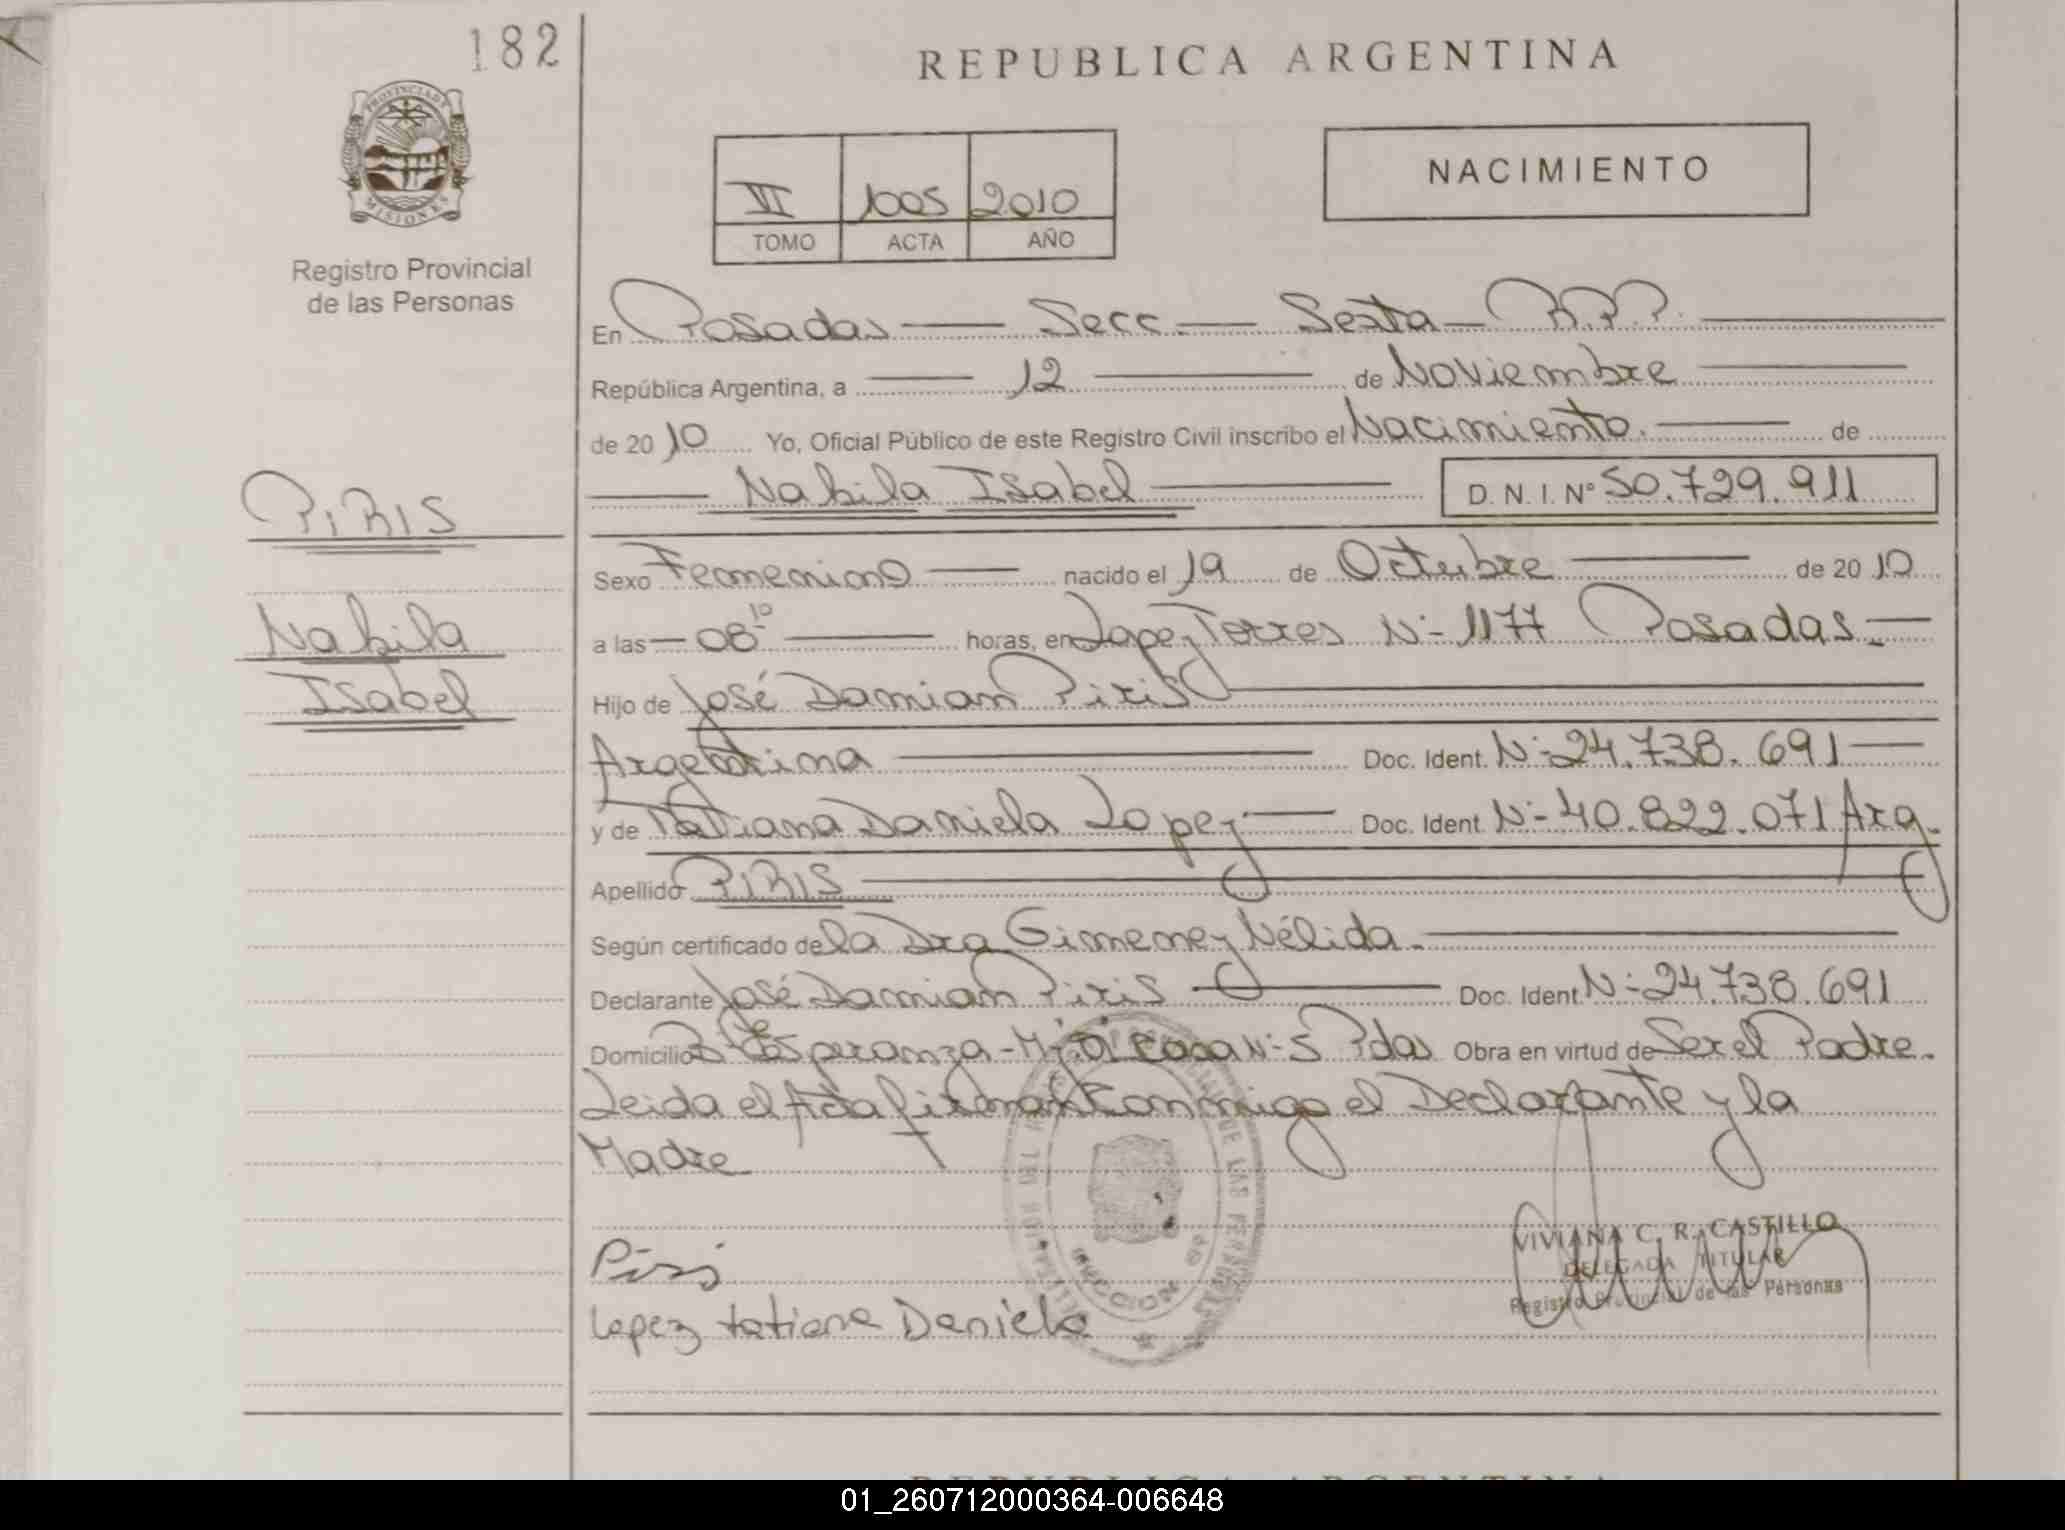 182
REPUBLICA ARGENTINA
PROVINCIA DE MISIONES
Registro Provincial
de las Personas
VI 1005 2010
TOMO ACTA AÑO
NACIMIENTO
En Posadas Secc. Sexta R.P.P.
República Argentina, a 12 de Noviembre
de 2010 Yo, Oficial Público de este Registro Civil inscribo el Nacimiento. de
Nahila Isabel D. N. I. Nº 50.729.911
PIRIS
Nahila
Isabel
Sexo Femenino nacido el 19 de Octubre de 2010
a las 08 10 horas, en Lopez Torres Nº 1177 Posadas.
Hijo de José Damian Piris
Argentina Doc. Ident. Nº 24.738.691
y de Tatiana Daniela Lopez Doc. Ident Nº 40.822.071 Arg.
Apellido PIRIS
Según certificado de la Dra Gimenez Nélida.
Declarante José Damian Piris Doc. Ident Nº 24.738.691
Domicilio Bº Esperanza - Casa Nº 5 Pdas Obra en virtud de Ser el Padre.
Leida el Acta firman conmigo el Declarante y la
Madre
Piris
Lopez tatiana Daniela
VIVIANA C. R. CASTILLO
DELEGADA TITULAR
Registro Provincial de las Personas
REPUBLICA ARGENTINA
01_260712000364-006648